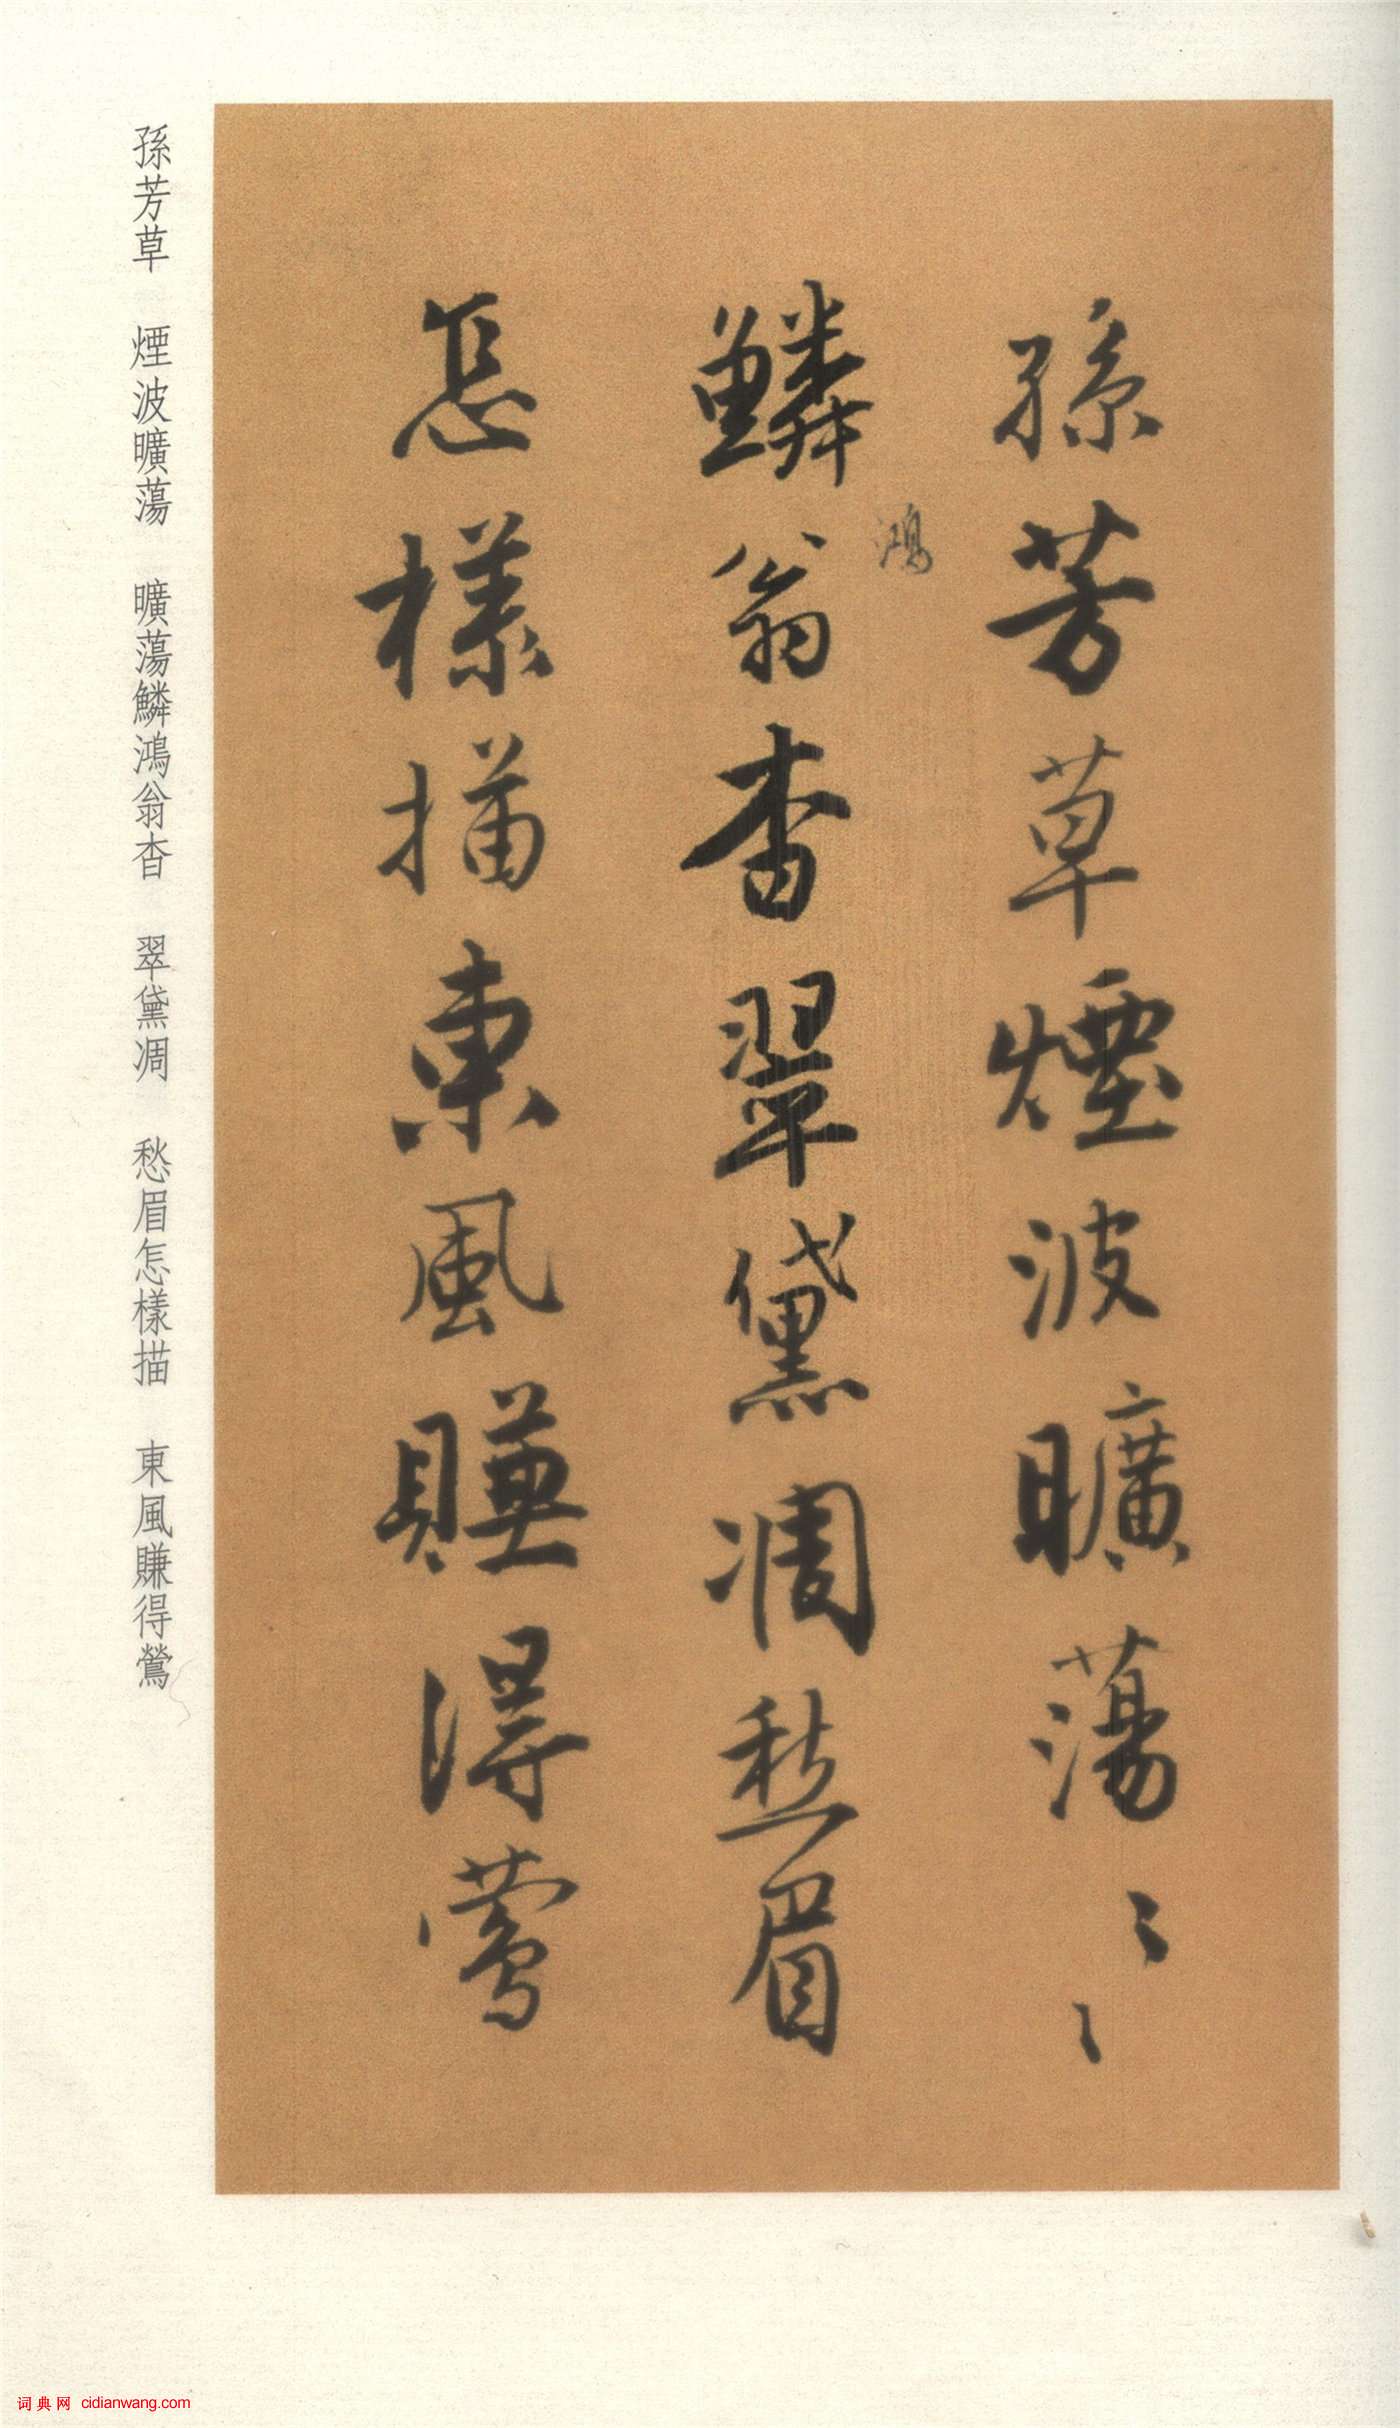 孫芳草煙波曠蕩〻〻
鱗翁杳翠黛凋愁眉
鴻
怎樣描東風賺得鶯
孫芳草　煙波曠蕩　曠蕩鱗鴻翁杳　翠黛凋　愁眉怎樣描　東風賺得鶯
词典网 cidianwang.com